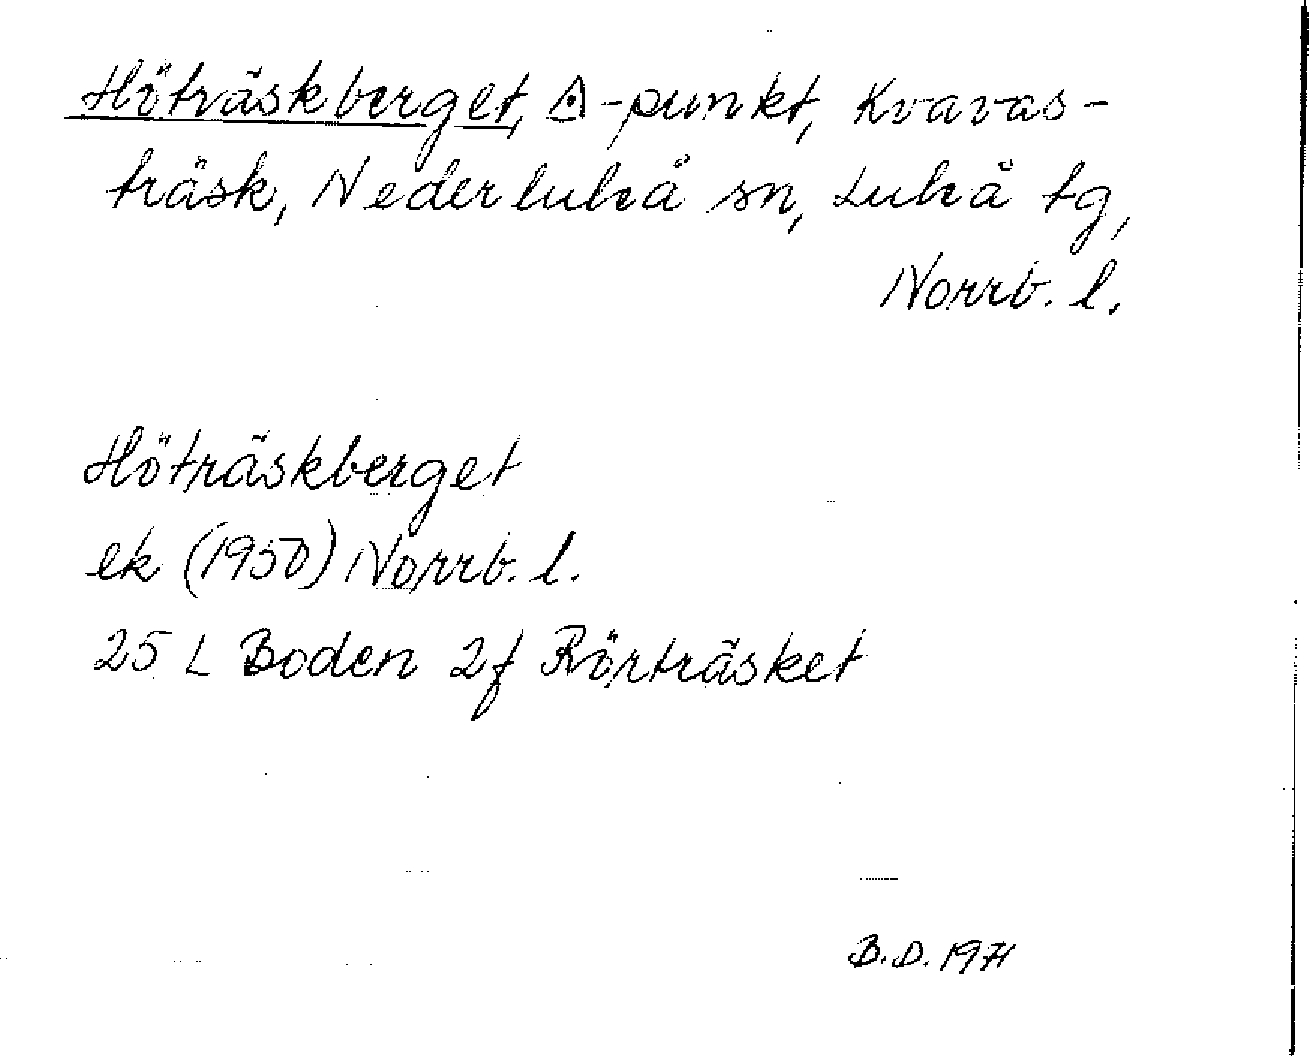 Höträskberget, ◬-punkt, Kvavas-
träsk, Nederluleå sn, Luleå tg,
Norrb. l.
Höträskberget
ek (1950) Norrb. l.
25 L Boden 2f Rörträsket
B.D. 1971